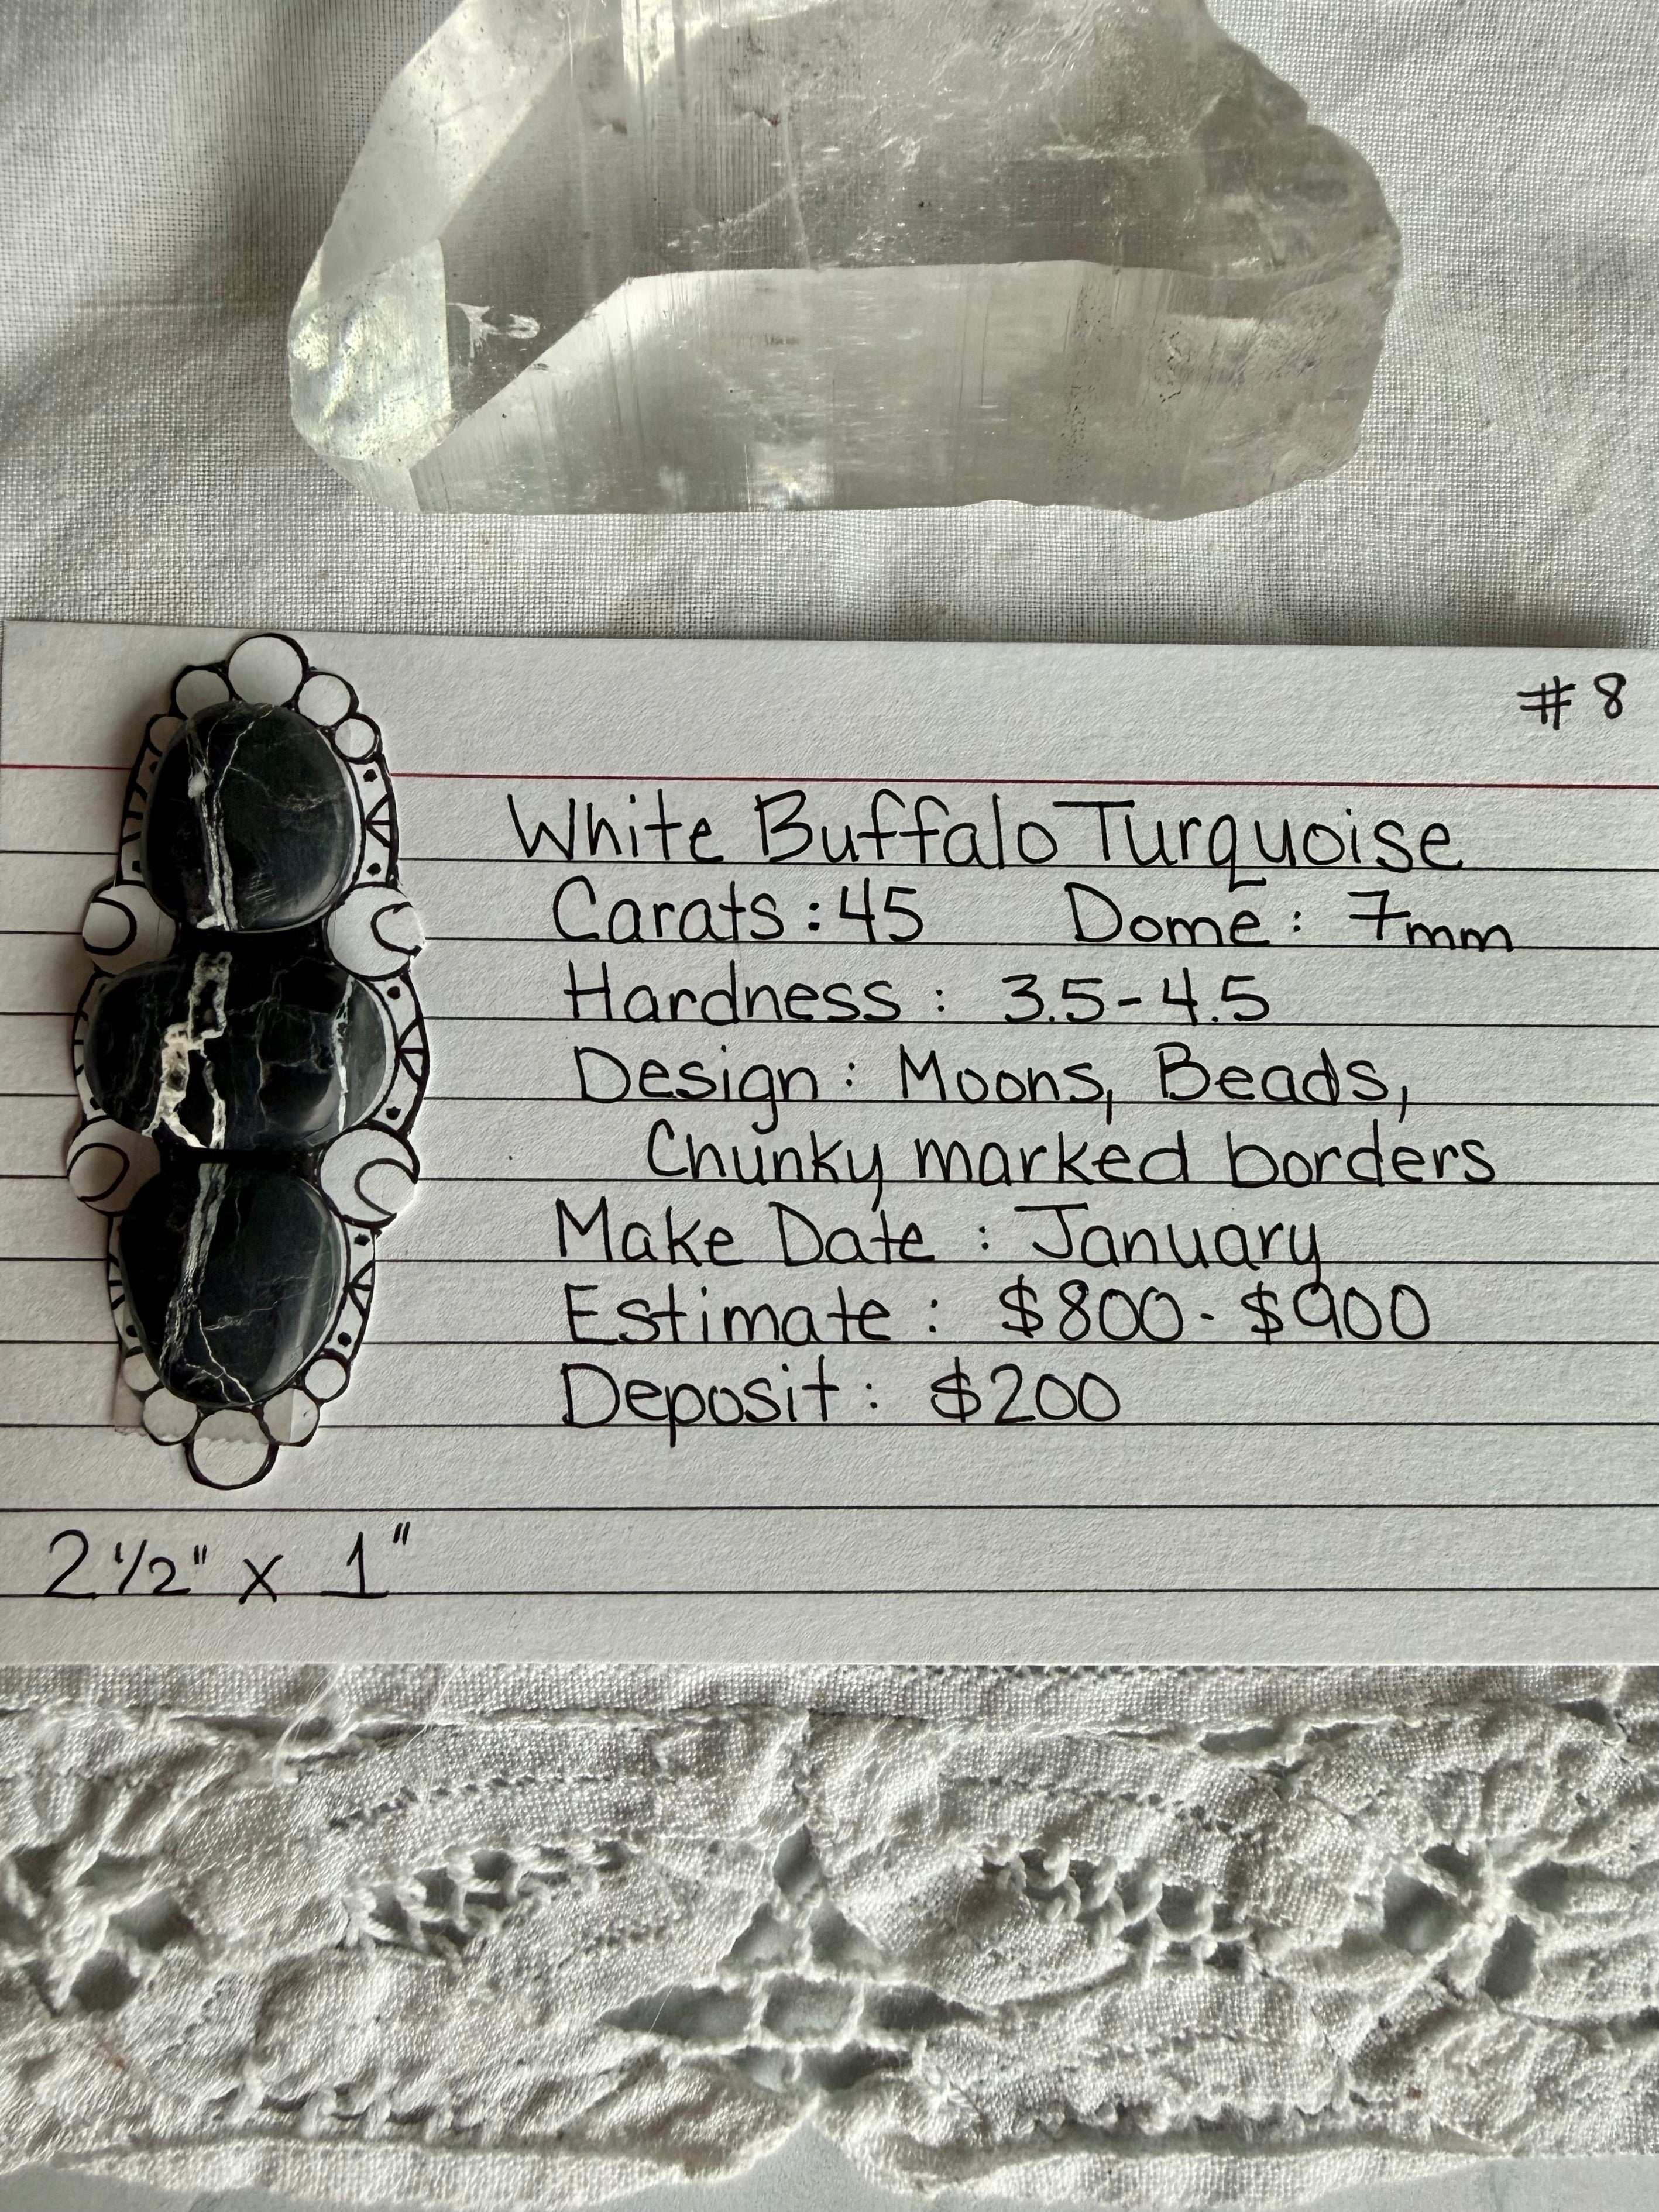 #8
White Buffalo Turquoise
Carats: 45 Dome: 7mm
Hardness: 3.5-4.5
Design: Moons, Beads,
Chunky marked borders
Make Date: January
Estimate: $800-$900
Deposit: $200
2 1/2" x 1"